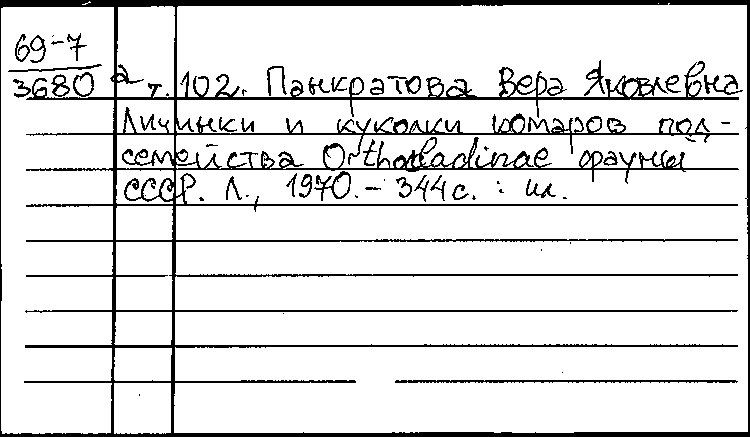 69-7
3680 а т. 102. Панкратова Вера Яковлевна
Личинки и куколки комаров под-
семейства Orthocladinae фауны
СССР. Л., 1970. - 344 с. : ил.